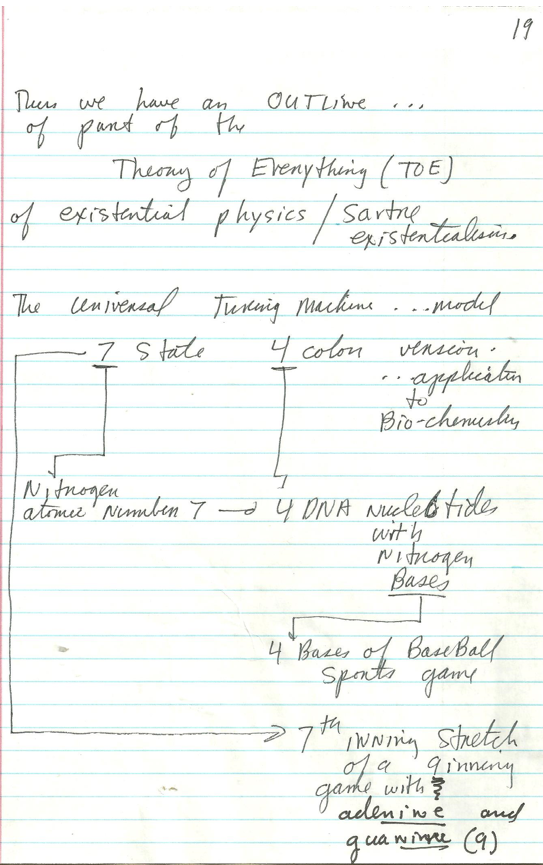 19
Thus we have an OUTLine ...
of part of the
Theory of Everything (TOE)
of existential physics / Sartre
existentialism.
The Universal Turing Machine ... model
7 State 4 color version.
... application
to
Bio-chemistry
Nitrogen
atomic Number 7 → 4 DNA nucleotides
with
Nitrogen
Bases
4 Bases of BaseBall
Sports game
7th inning stretch
of a 9 inning
game with
adenine and
guanine (9)